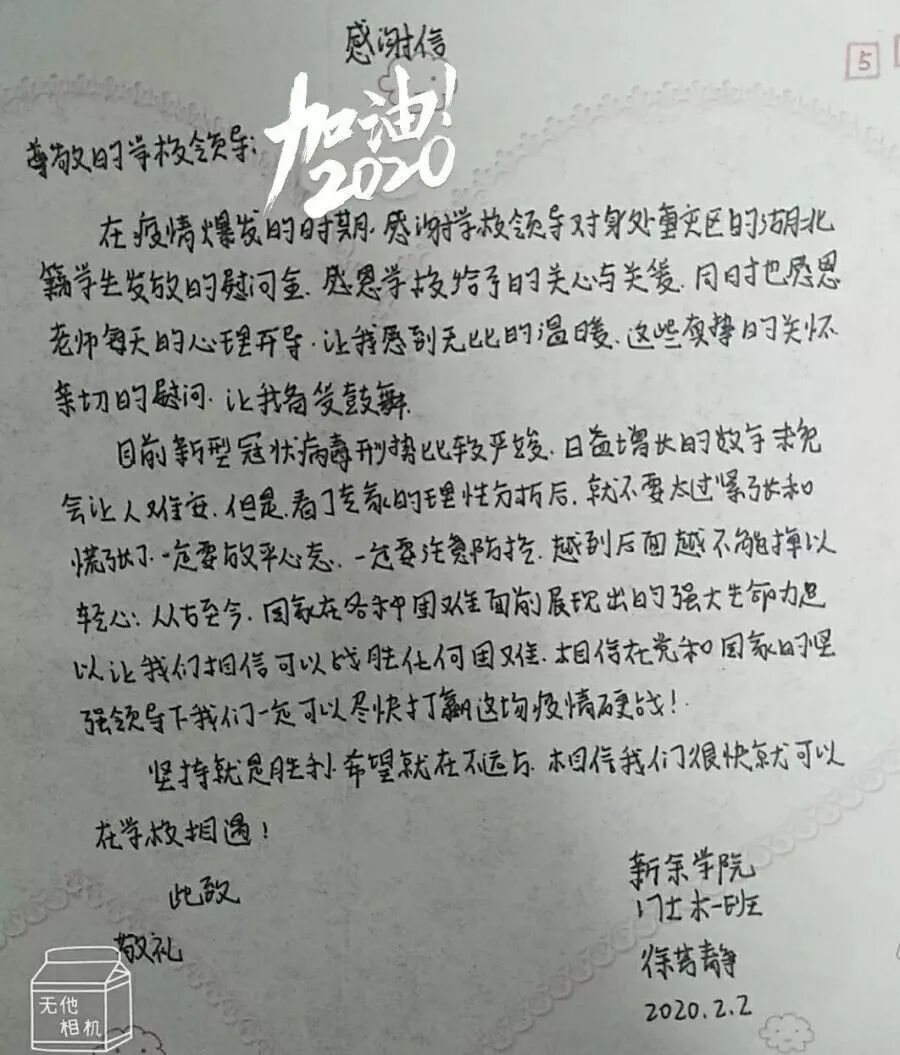 感谢信
5
加油!
2020
尊敬的学校领导:
在疫情爆发的时期,感谢学校领导对身处重灾区的湖北
籍学生发放的慰问金,感恩学校给予的关心与关爱,同时也感恩
老师每天的心理开导,让我感到无比的温暖,这些真挚的关怀
亲切的慰问,让我备受鼓舞.
目前新型冠状病毒形势比较严峻,日益增长的数字难免
会让人难安,但是,看了专家的理性分析后,就不要太过紧张和
慌张了,一定要放平心态,一定要注意防控,越到后面越不能掉以
轻心;从古至今,国家在各种困难面前展现出的强大生命力足
以让我们相信可以战胜任何困难,相信在党和国家的坚
强领导下我们一定可以尽快打赢这场疫情硬战!
坚持就是胜利,希望就在不远方,相信我们很快就可以
在学校相遇!
此致
敬礼
新余学院
17土木一班
徐芳静
2020.2.2
无他
相机